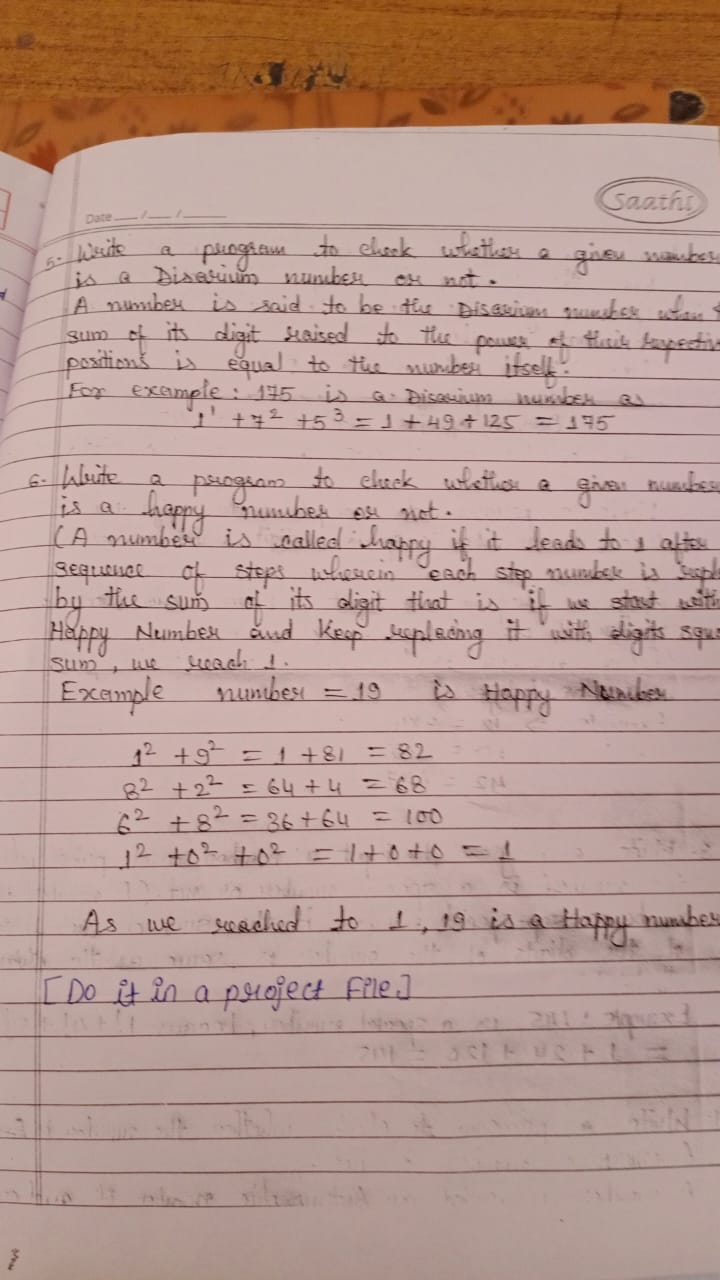 Saathi
Date ___/___/______
5. Write a program to check whether a given number
is a Disarium number or not.
A number is said to be the Disarium number when
sum of its digit raised to the power of their respectiv
positions is equal to the number itself.
For example: 175 is a Disarium number as
1¹ + 7² + 5³ = 1 + 49 + 125 = 175
6. Write a program to check whether a given number
is a happy number or not.
(A number is called happy if it leads to 1 after
sequence of steps wherein each step number is repl
by the sum of its digit that is if we start with
Happy Number and Keep replacing it with digits squ
sum, we reach 1.
Example number = 19 is Happy Number
1² + 9² = 1 + 81 = 82
8² + 2² = 64 + 4 = 68
6² + 8² = 36 + 64 = 100
1² + 0² + 0² = 1 + 0 + 0 = 1
As we reached to 1, 19 is a Happy number
[Do it in a project File.]